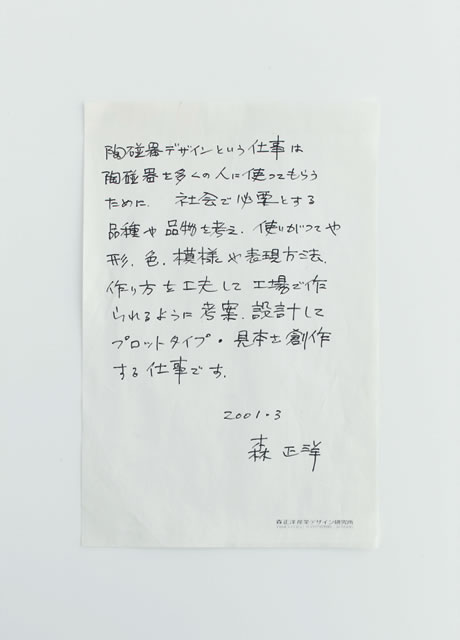 陶磁器デザインという仕事は
陶磁器を多くの人に使ってもらう
ために、社会で必要とする
品種や品物を考え、使いがってや
形、色、模様や表現方法、
作り方を工夫して工場で作
られるように考案、設計して
プロットタイプ・見本を創作
する仕事です。
2001.3
森 正洋
森正洋産業デザイン研究所